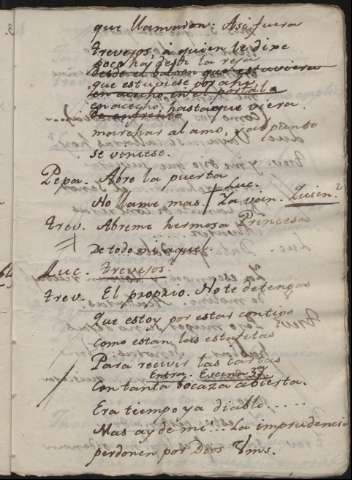 que llamaron: Asi fuera
Trevejos, á quien le dixe
poco hay desde la reja
desde el balcon que estuviera
que estuviese por aqui
en acecho, hasta que viera
marchar al amo, y al punto
se viniese.
Pepa. Abro la puerta
Luc.
No llame mas. La voy. Quien?
Trev. Abreme hermosa Princesa
De todo mi jaque.
Luc. Trevejos.
Trev. El propio. No te detengas
que estoy por estar contigo
como estan las estafetas
Para recivir las cartas
Entra. Escena 3ª
con tanta bocaza abierta.
Era tiempo ya diablo.....
Mas ay de mi... La imprudencia
perdonen por Dios Vms.